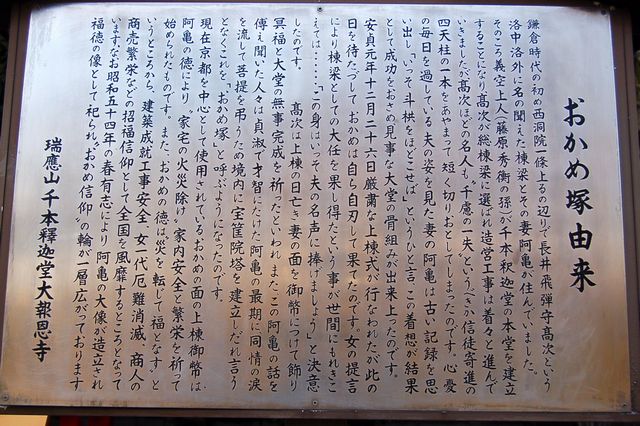 おかめ塚由来
鎌倉時代の初め西洞院一條上るの辺りで長井飛弾守高次という
洛中洛外に名の聞えた棟梁とその妻阿亀が住んでいました。
そのころ義空上人(藤原秀衡の孫)が千本釈迦堂の本堂を建立
することになり高次が総棟梁に選ばれ造営工事は着々と進んで
いきましたが高次ほどの名人も"千慮の一失"というべきか信徒寄進の
四天柱の一本をあやまって短く切りおとしてしまったのです。心憂
の毎日を過している夫の姿を見た妻の阿亀は古い記録を思
い出し"いっそ斗栱をほどこせば"というひと言、この着想が結果
として成功をおさめ見事な大堂の骨組みが出来上ったのです。
安貞元年十二月二十六日厳粛な上棟式が行なわれたが此の
日を待たずして おかめは自ら自刃して果てたのです。女の提言
により棟梁としての大任を果し得たという事が世間にもれきこ
えては……"この身はいっそ夫の名声に捧げましょう"と決意
したのです。
高次は上棟の日亡き妻の面を御幣につけて飾り
冥福と大堂の無事完成を祈ったといわれ、またこの阿亀の話を
傳え聞いた人々は貞淑で才智にたけた阿亀の最期に同情の涙
を流して菩提を弔うため境内に宝篋院塔を建立しだれ言う
となくこれを「おかめ塚」と呼ぶようになったのです。
現在京都を中心として使用されているおかめの面の上棟御幣は
阿亀の徳により、家宅の火災除け家内安全と繁栄を祈って
始められたものです。また"おかめの徳は災を転じて福となす"と
いうところから、建築成就工事安全、女一代厄難消滅、商人の
商売繁栄などの招福信仰として全国を風靡するところとなって
いますなお昭和五十四年の春有志により阿亀の大像が造立され
福徳の像として祀られ"おかめ信仰"の輪が一層広がっております
瑞應山千本釋迦堂大報恩寺